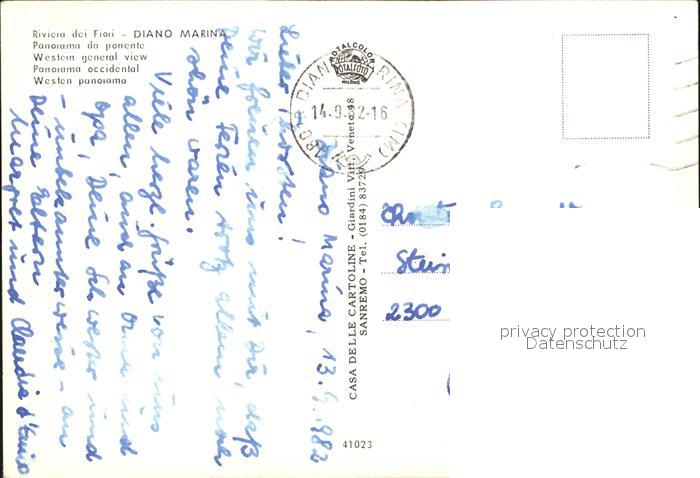 Riviera dei Fiori - DIANO MARINA
Panorama da ponente
Western general view
Panorama occidental
Western panorama
ROTALCOLOR
ROTALFOTO
MILANO
14.9.82-16
18013 DIANO MARINA (IM)
CASA DELLE CARTOLINE - Giardini Vitt. Veneto 48
SANREMO - Tel. (0184) 83729
41023
Diano Marina, 13.9.1982
Lieber Thorsten!
Wir freuen uns mit Dir, daß
Deine Ferien trotz allem noch
schön waren.
Viele herzl. Grüße von uns
allen, auch an Oma und
Opa, Deine Schwester und
- unbekannterweise - an
Deine Eltern
Margret und Claudia
Stein
2300
privacy protection
Datenschutz